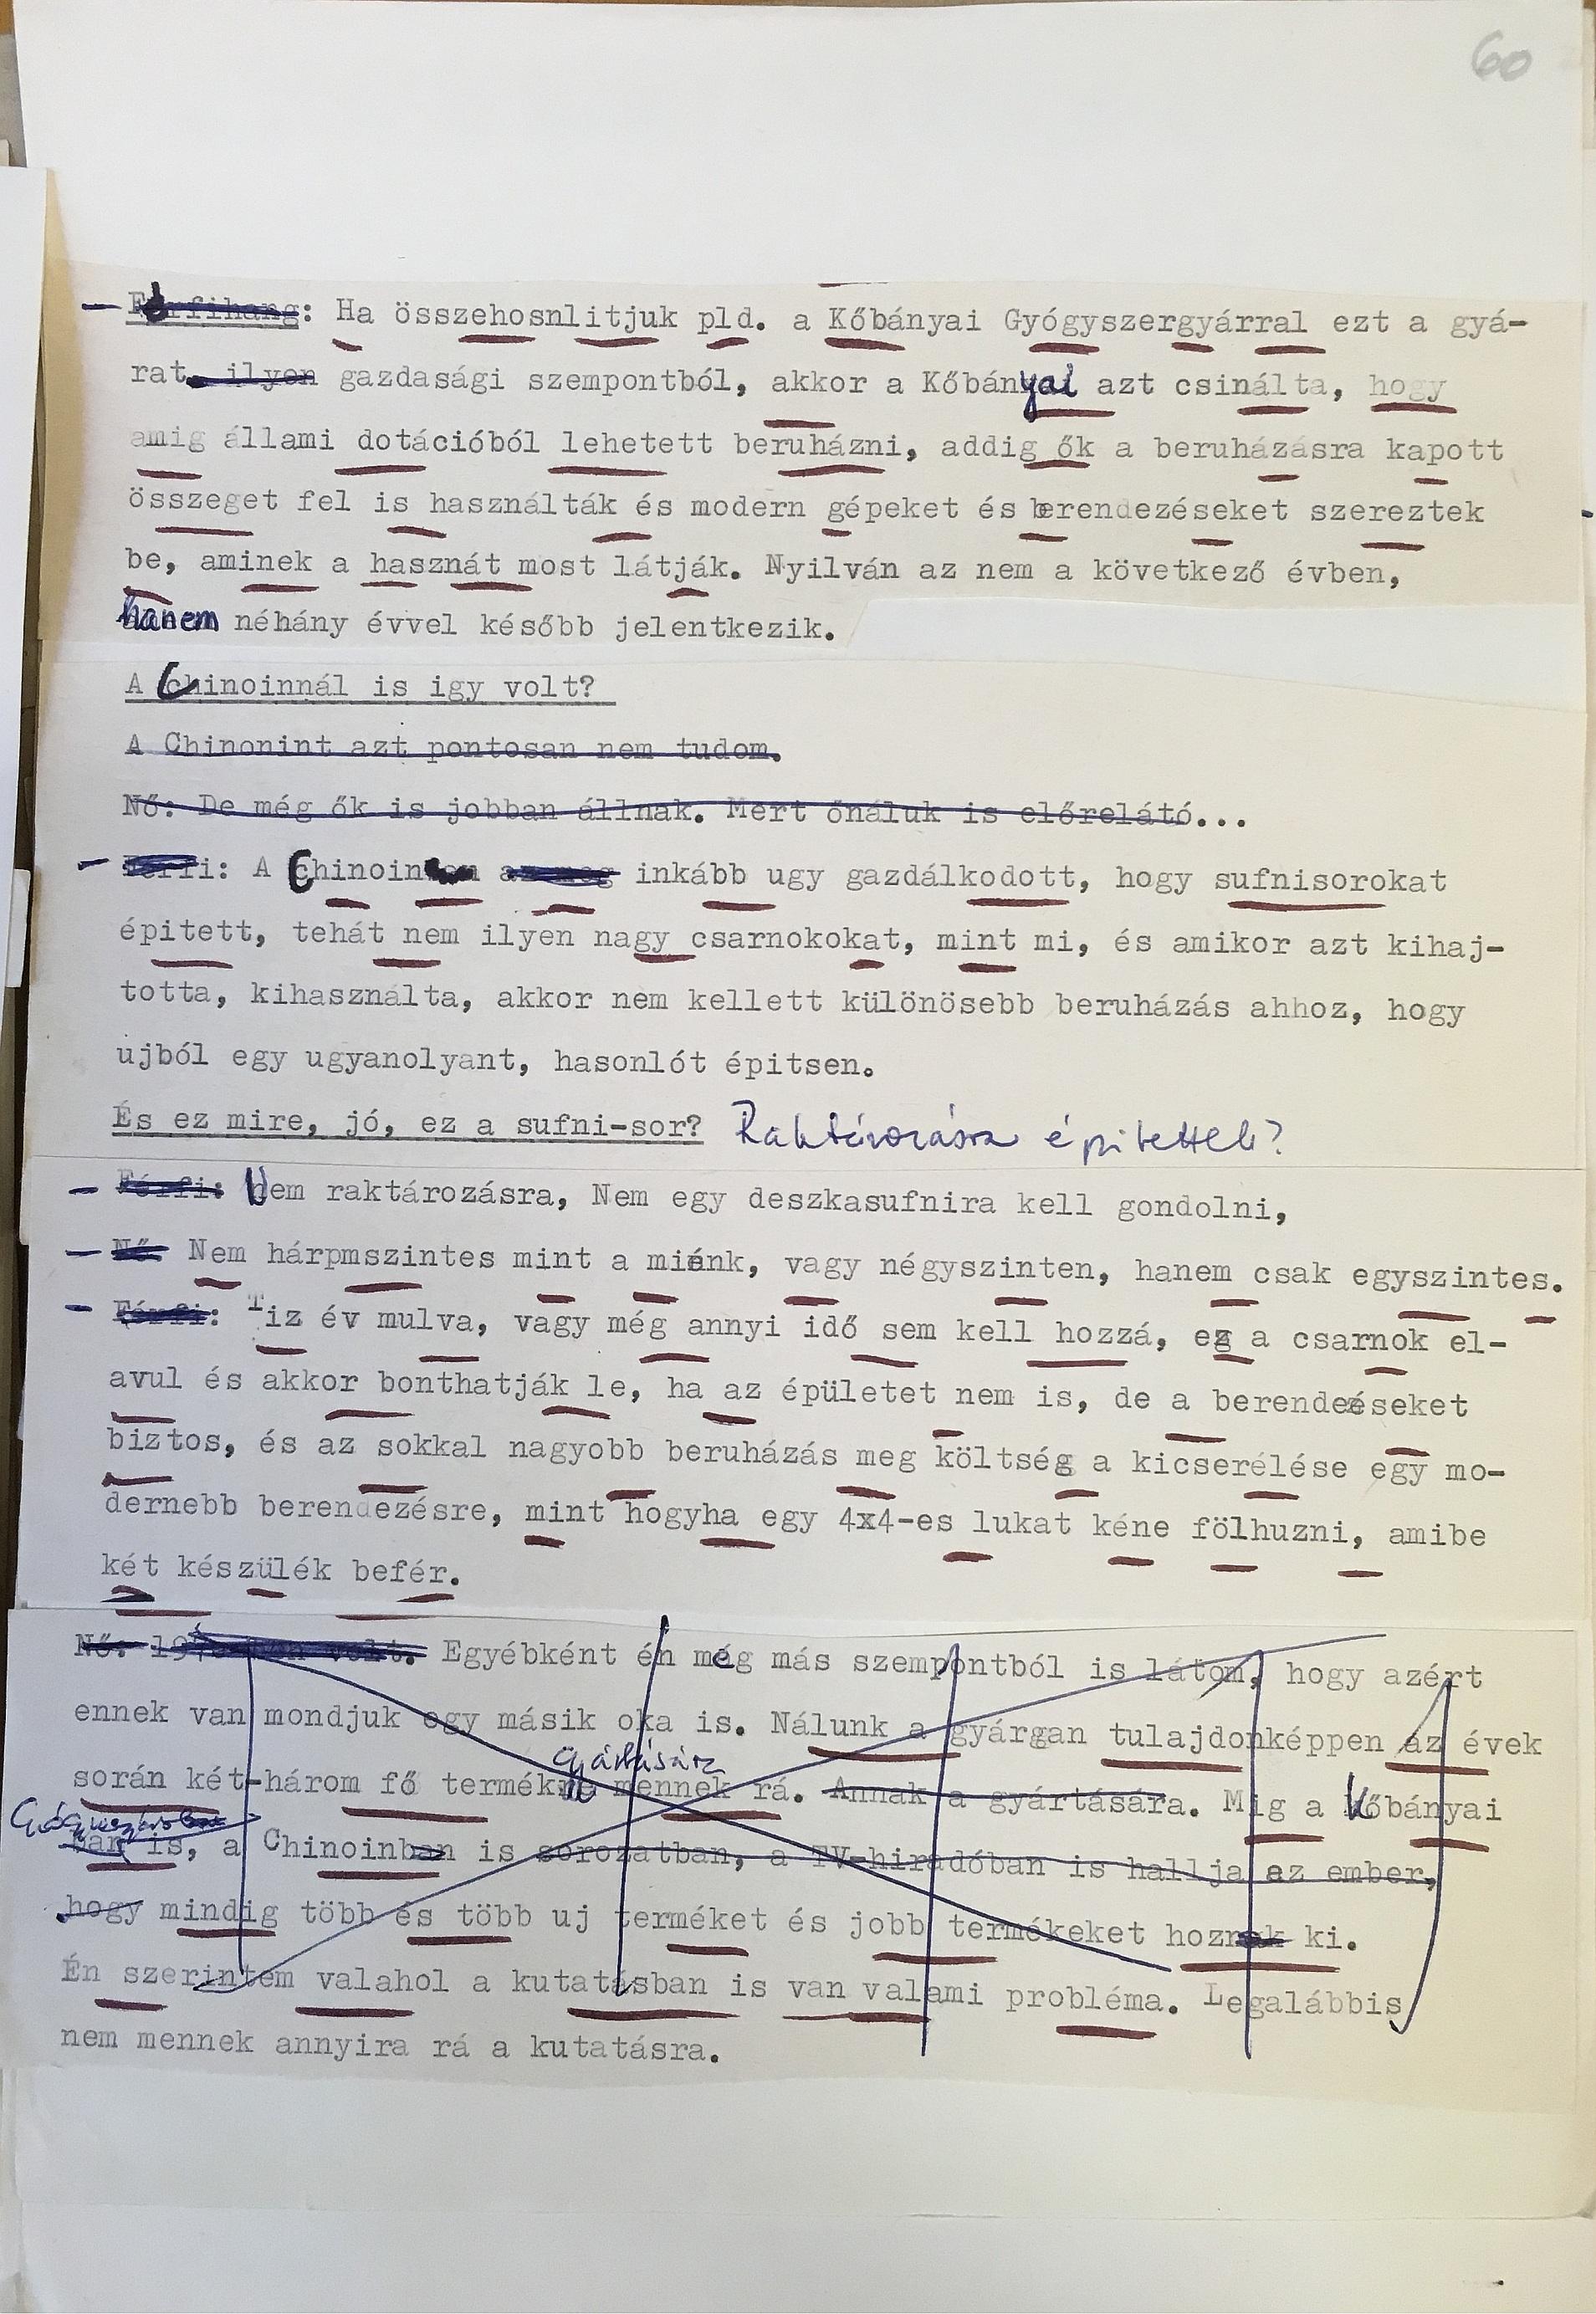 60
- Férfihang: Ha összehosnlitjuk pld. a Kőbányai Gyógyszergyárral ezt a gyá-
rat ilyen gazdasági szempontból, akkor a Kőbányai azt csinálta, hogy
amig állami dotációból lehetett beruházni, addig ők a beruházásra kapott
összeget fel is használták és modern gépeket és berendezéseket szereztek
be, aminek a hasznát most látják. Nyilván az nem a következő évben,
hanem néhány évvel később jelentkezik.
A Chinoinnál is igy volt?
A Chinonint azt pontosan nem tudom.
Nő: De még ők is jobban állnak. Mert őnáluk is előrelátó...
- Férfi: A Chinoin az meg inkább ugy gazdálkodott, hogy sufnisorokat
épitett, tehát nem ilyen nagy csarnokokat, mint mi, és amikor azt kihaj-
totta, kihasználta, akkor nem kellett különösebb beruházás ahhoz, hogy
ujból egy ugyanolyant, hasonlót épitsen.
És ez mire, jó, ez a sufni-sor? Raktározásra épitettek?
- Férfi: Nem raktározásra, Nem egy deszkasufnira kell gondolni,
- Nő: Nem hárpmszintes mint a miénk, vagy négyszinten, hanem csak egyszintes.
- Férfi: Tiz év mulva, vagy még annyi idő sem kell hozzá, ez a csarnok el-
avul és akkor bonthatják le, ha az épületet nem is, de a berendezéseket
biztos, és az sokkal nagyobb beruházás meg költség a kicserélése egy mo-
dernebb berendezésre, mint hogyha egy 4x4-es lukat kéne fölhuzni, amibe
két készülék befér.
Nő: volt. Egyébként én még más szempontból is látom, hogy azért
ennek van mondjuk egy másik oka is. Nálunk a gyárgan tulajdonképpen az évek
során két-három fő termék gyártására mennek rá. Annak a gyártására. Mig a Kőbányai
ban is, a Chinoinban is sorozatban, a TV-hiradóban is hallja az ember,
hogy mindig több és több uj terméket és jobb termékeket hoznak ki.
Én szerintem valahol a kutatásban is van valami probléma. Legalábbis
nem mennek annyira rá a kutatásra.